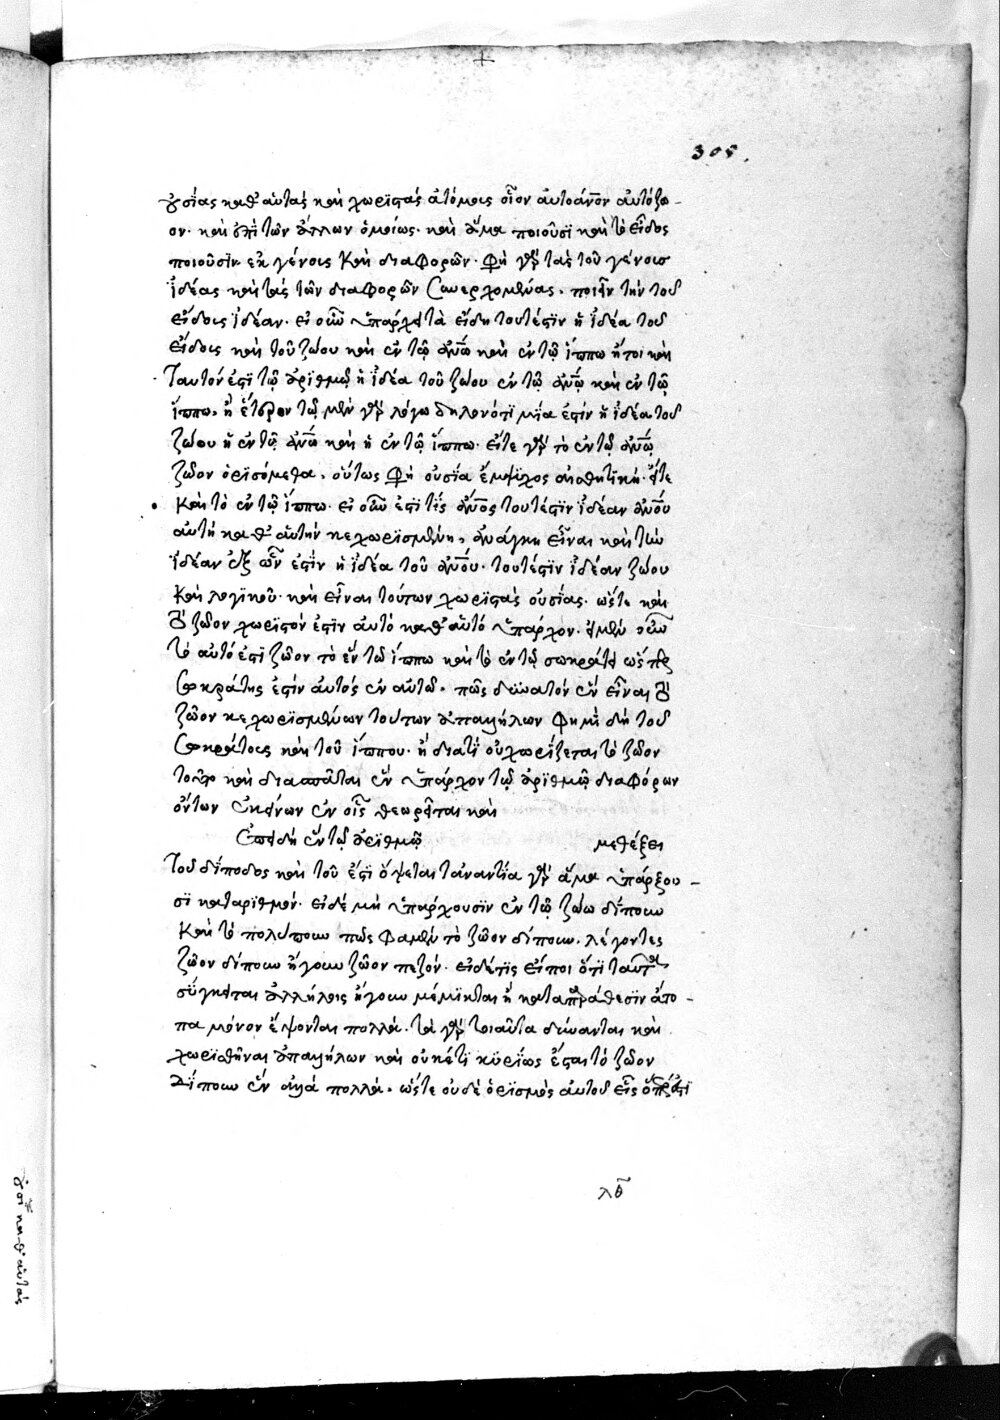 305.
οὐσίας καθ' αὑτὰς καὶ χωριστὰς ἀτόμοις οἷον αὐτοάνθρωπον αὐτόζω
ον. καὶ ἐπὶ τῶν ἄλλων ὁμοίως. καὶ ἅμα ποιοῦσι καὶ τὸ εἶδος
ποιοῦσιν ἐκ γένους καὶ διαφορῶν. φησὶ γὰρ τὰς τοῦ γένους
ἰδέας καὶ τὰς τῶν διαφορῶν συνερχομένας. ποιεῖν τὴν τοῦ
εἴδους ἰδέαν. εἰ οὖν ὑπάρχει τὰ εἴδη τουτέστιν ἡ ἰδέα τοῦ
εἴδους καὶ τοῦ ζώου καὶ ἐν τῷ ἀνθρώπῳ καὶ ἐν τῷ ἵππω ἤτοι καὶ
ταυτόν ἐστι τῷ ἀριθμῷ ἡ ἰδέα τοῦ ζώου ἐν τῷ ἀνθρώπῳ καὶ ἐν τῷ
ἵππω. ἢ ἕτερον τῷ μὲν γὰρ λόγω δηλονότι μία ἐστὶν ἡ ἰδέα τοῦ
ζώου ἡ ἐν τῷ ἀνθρώπῳ καὶ ἡ ἐν τῷ ἵππω. εἴτε γὰρ τὸ ἐν τῷ ἀνθρώπῳ
ζῶον ὁρισόμεθα. οὕτως φησὶ οὐσία ἔμψυχος αἰσθητική. εἴτε
καὶ τὸ ἐν τῷ ἵππω. εἰ οὖν ἐστί τίς ἄνθρωπος τουτέστιν ἰδέαν ἀνθρώπου
αὐτὴ καθ' αὑτὴν κεχωρισμένη, ἀνάγκη εἶναι καὶ τὴν
ἰδέαν ἐξ ὧν ἐστὶν ἡ ἰδέα τοῦ ἀνθρώπου. τουτέστιν ἰδέαν ζώου
καὶ λογικοῦ. καὶ εἶναι τούτων χωριστὰς οὐσίας. ὥστε καὶ
τὸ ζῶον χωριστόν ἐστιν αὐτὸ καθ' αὑτό ὑπάρχον. εἰ μὲν οὖν
τὸ αὐτό ἐστι ζῶον τὸ ἐν τῶ ἵππω καὶ τὸ ἐν τῷ σωκράτει ὥσπερ
σωκράτης ἐστὶν αὐτὸς ἐν αὑτῶ. πῶς δυνατὸν ἓν εἶναι τὸ
ζῶον κεχωρισμένων τούτων ἀπαλλήλων φημὶ δὴ τοῦ
σωκράτους καὶ τοῦ ἵππου. ἢ διατί οὐ χωρίζεται τὸ ζῶον
τοῦτο καὶ διασπᾶται ἓν ὑπάρχον τῷ ἀριθμῷ διαφόρων
ὄντων ἐκείνων ἐν οἷς θεωρεῖται καὶ
ἐπειδὴ ἓν τῷ ἀριθμῷ μεθέξει
τοῦ δίποδος καὶ τοῦ ἔστι ὄψεται τἀναντία γὰρ ἅμα ὑπάρξου
σι καταριθμόν. εἰ δὲ μὴ ὑπάρχουσιν ἐν τῷ ζώω δίπουν
καὶ τὸ πολύπουν πῶς φαμὲν τὸ ζῶον δίπουν. λέγοντες
ζῶον δίπουν ἤγουν ζῶον πεζόν. εἰ δέ τις εἴποι ὅτι ταῦτα
σύγκειται ἀλλήλοις ἤγουν μέμικται ἢ κατὰ παράθεσιν ἄτο
πα μόνον ἕψονται πολλά. τὰ γὰρ τοιαῦτα δύνανται καὶ
χωρισθῆναι ἀπαλλήλων καὶ οὐκέτι κυρίως ἔσται τὸ ζῶον
δίπουν ἓν ἀλλὰ πολλά. ὥστε οὐδὲ ὁρισμὸς αὐτοῦ εἷς
λθ
καθ' αὑτάς